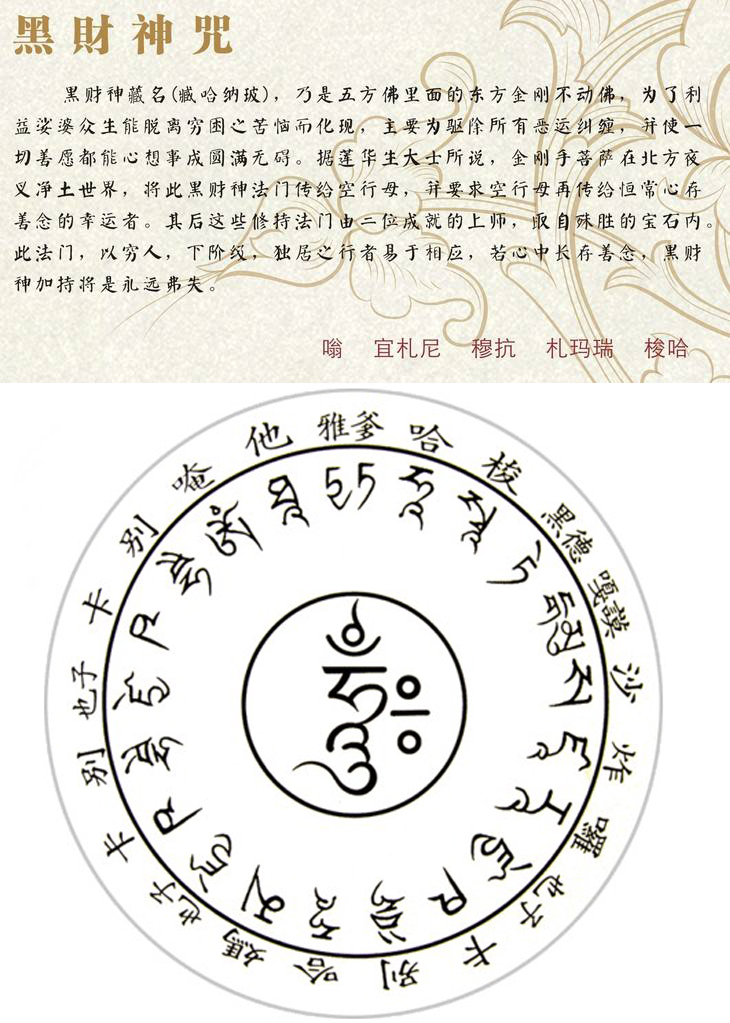 黑財神咒
黑财神藏名(臧哈纳玻)，乃是五方佛里面的东方金刚不动佛，为了利
益娑婆众生能脱离穷困之苦恼而化现，主要为驱除所有恶运纠缠，并使一
切善愿都能心想事成圆满无碍。据莲华生大士所说，金刚手菩萨在北方夜
叉净土世界，将此黑财神法门传给空行母，并要求空行母再传给恒常心存
善念的幸运者。其后这些修持法门由二位成就的上师，取自殊胜的宝石内。
此法门，以穷人，下阶级，独居之行者易于相应，若心中长存善念，黑财
神加持将是永远弗失。
嗡 宜札尼 穆抗 札玛瑞 梭哈
爹雅 他 唵 别 卡 子也 别 卡 子也 媽 哈 别 卡 子也 囉 炸 沙 謨嘎 德黑 梭 哈